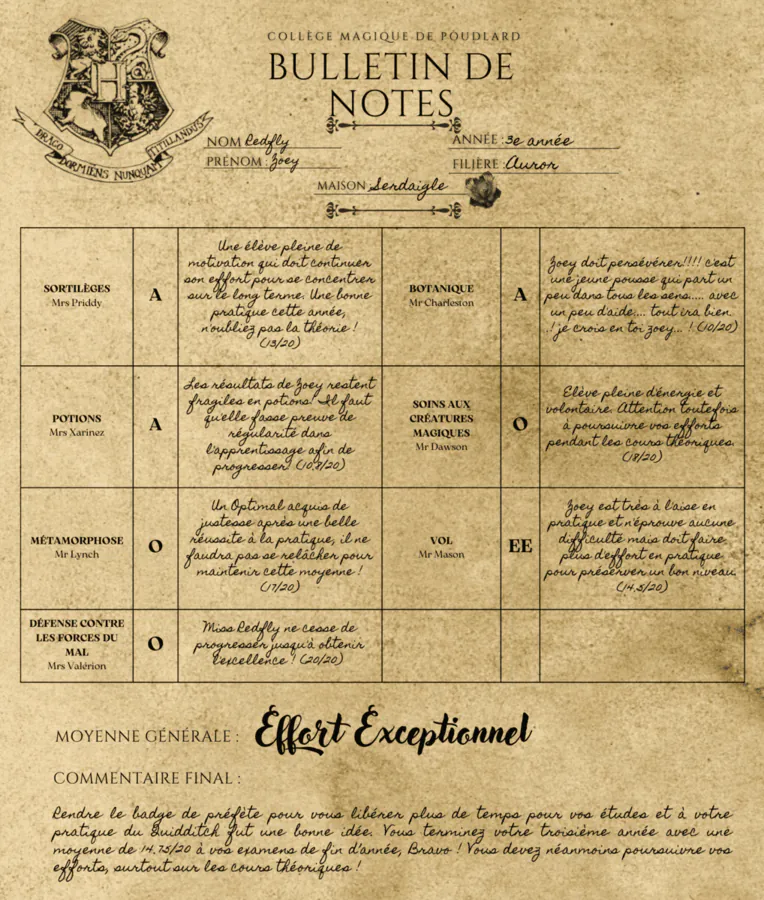 COLLÈGE MAGIQUE DE POUDLARD
BULLETIN DE
NOTES
DRACO
DORMIENS NUNQUAM
TITILLANDUS
H
NOM Redfly
ANNÉE : 3e année
PRÉNOM : Zoey
FILIÈRE : Auror
MAISON Serdaigle
SORTILÈGES
Mrs Priddy
A
Une élève pleine de
motivation qui doit continuer
son effort pour se concentrer
sur le long terme. Une bonne
pratique cette année,
n'oubliez pas la théorie !
(13/20)
BOTANIQUE
Mr Charleston
A
Zoey doit persévérer!!!! c'est
une jeune pousse qui part un
peu dans tous les sens..... avec
un peu d'aide.... tout ira bien
..! je crois en toi Zoey... ! (10/20)
POTIONS
Mrs Xarinez
A
Les résultats de Zoey restent
fragiles en potions! Il faut
qu'elle fasse preuve de
régularité dans
l'apprentissage afin de
progresser! (10,8/20)
SOINS AUX
CRÉATURES
MAGIQUES
Mr Dawson
O
Elève pleine d'énergie et
volontaire. Attention toutefois
à poursuivre vos efforts
pendant les cours théoriques.
(18/20)
MÉTAMORPHOSE
Mr Lynch
O
Un Optimal acquis de
justesse après une belle
réussite à la pratique, il ne
faudra pas se relâcher pour
maintenir cette moyenne !
(17/20)
VOL
Mr Mason
EE
Zoey est très à l'aise en
pratique et n'éprouve aucune
difficulté mais doit faire
plus d'effort en pratique
pour préserver un bon niveau.
(14,5/20)
DÉFENSE CONTRE
LES FORCES DU
MAL
Mrs Valérion
O
Miss Redfly ne cesse de
progresser jusqu'à obtenir
l'excellence ! (20/20)
MOYENNE GÉNÉRALE : Effort Exceptionnel
COMMENTAIRE FINAL :
Rendre le badge de préfète pour vous libérer plus de temps pour vos études et à votre
pratique du Quidditch fut une bonne idée. Vous terminez votre troisième année avec une
moyenne de 14.75/20 à vos examens de fin d'année, Bravo ! Vous devez néanmoins poursuivre vos
efforts, surtout sur les cours théoriques !